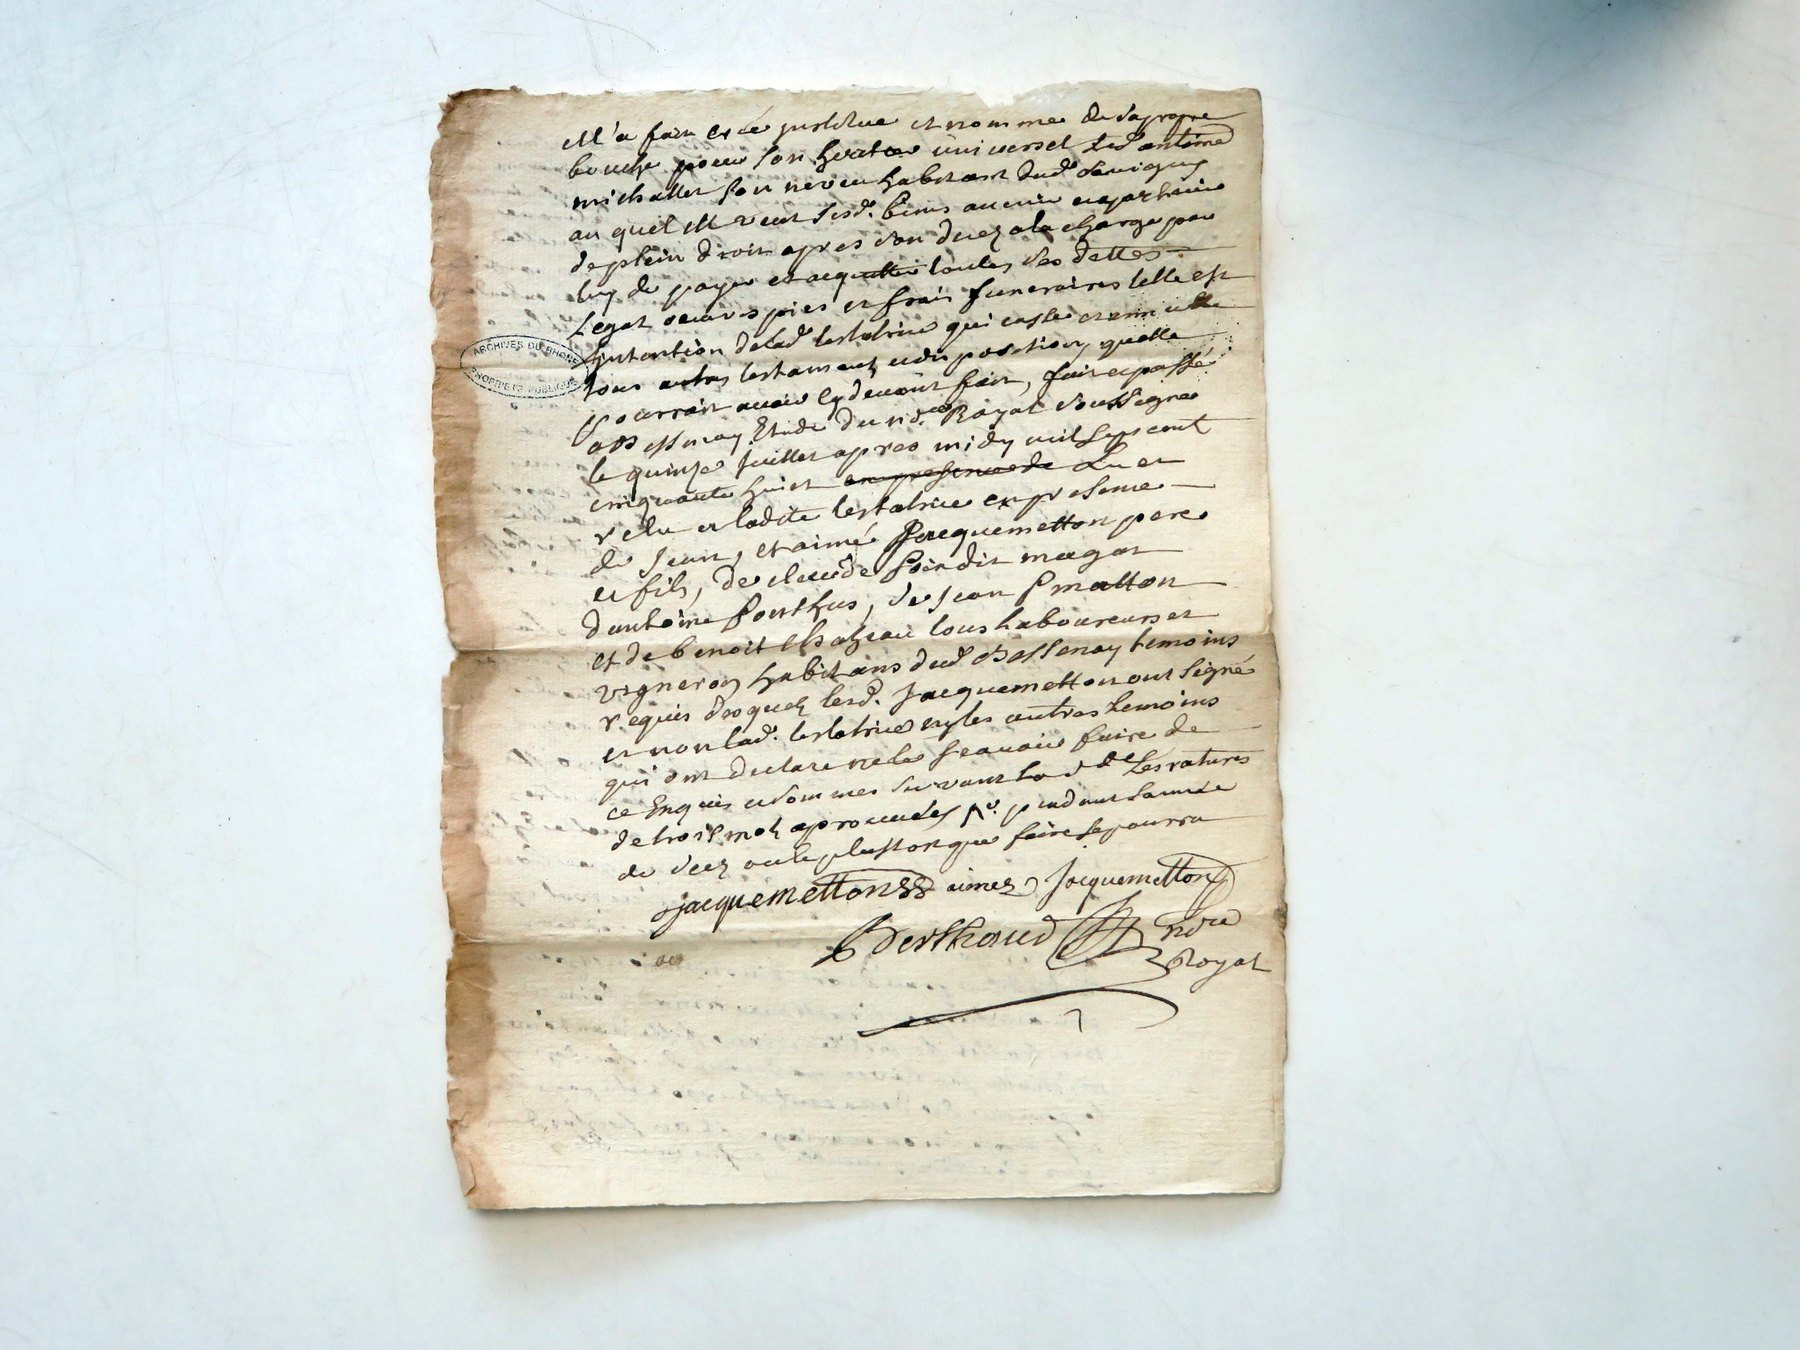 Ell'a fait crée institue et nomme de sa propre
bouche pour son heritier universel led antoine
michallet son neveu habitant dud Savigny
au quel ell veut sesd. biens avenir et apartenir
de plein droit apres son decez a la charge par
luy de payer et acquitter toutes ses dettes
legat œuvres pies et frais funeraires telle est
lintention de lad testatrice qui casse et annulle
tous autres testaments et disposition quelle
pourroit avoir cy devant fait, fait et passé
a Bessenay Etude dund.re Royal soussigné
le quinze Juillet apres midy mil sept cent
cinquante huict en presence de Lu et
relu a ladite testatrice en presence
de Jean, et aimé Jacquemetton pere
et fils, de claude Poin dit magat
d'antoine Ponthus, de Jean Pmatton
et de benoit chazeau tous laboureurs et
vigneron habitans dud Bessenay temoins
requis desquelz lesd. Jacquemetton ont signé
et non lad. testatrice ny les autres temoins
qui ont declare ne le scavoir faire de
ce Enquis et sommes suivant lo d.ce Les ratures
de trois mot aprouvées pendant l'année
de decez ou le plustost que faire se pourra
jacquemetton aimez Jacquemetton
Berthaud ndre
Royal
ARCHIVES DU RHONE
PROPRIETE PUBLIQUE